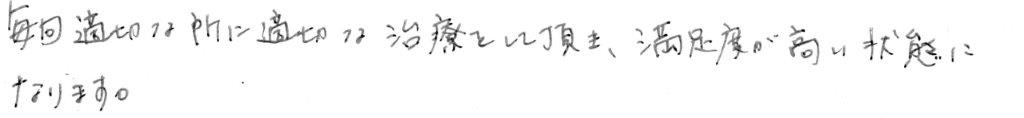 毎回適切な所に適切な治療をして頂き、満足度が高い状態に
なります。